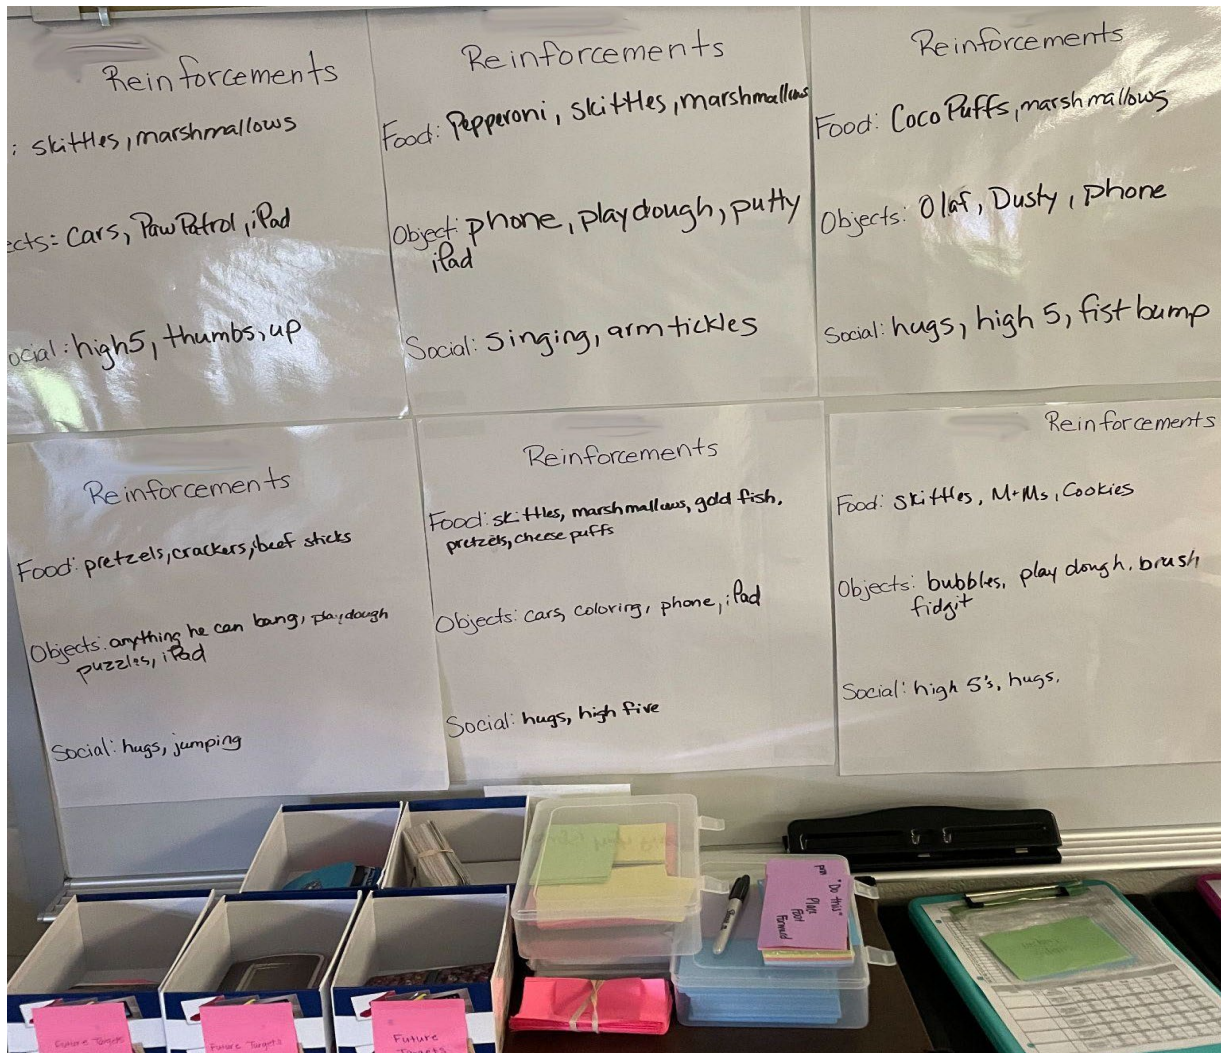 Reinforcements
: skittles, marshmallows
ects: Cars, Paw Patrol, iPad
ocial: high5, thumbs, up
Reinforcements
Food: Pepperoni, skittles, marshmallows
Object: phone, playdough, putty
iPad
Social: singing, arm tickles
Reinforcements
Food: Coco Puffs, marshmallows
Objects: Olaf, Dusty, phone
Social: hugs, high 5, fist bump
Reinforcements
Food: pretzels, crackers, beef sticks
Objects: anything he can bang, playdough
puzzles, iPad
Social: hugs, jumping
Reinforcements
Food: skittles, marshmallows, gold fish,
pretzels, cheese puffs
Objects: cars, coloring, phone, iPad
Social: hugs, high five
Reinforcements
Food: skittles, M+Ms, Cookies
Objects: bubbles, play dough, brush
fidgit
Social: high 5's, hugs,
"Do this"
Place
Foot
Forward
Future Targets
Future Targets
Future
Targets